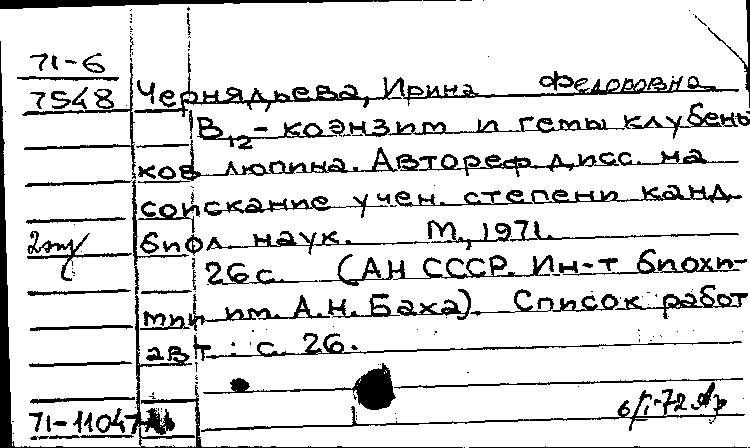 71-6
7548 Чернядьева, Ирина Федоровна
B₁₂-коэнзим и гемы клубень
ков люпина. Автореф. дисс. на
соискание учен. степени канд.
биол. наук. М., 1971.
26 с. (АН СССР. Ин-т биохи-
мии им. А.Н. Баха). Список работ
авт.: с. 26.
71-11047
6/I-72